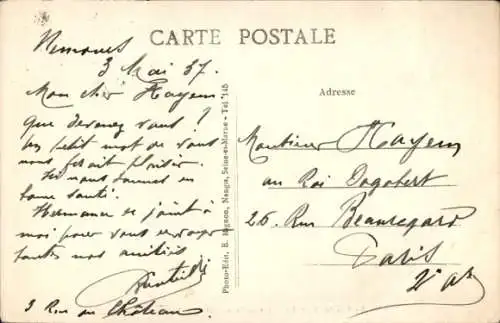 CARTE POSTALE
Nemours
3 Mai 37.
Mon cher Hayem
que devenez vous ?
un petit mot de vous
nous ferait plaisir.
nous sommes en
bonne santé.
Hermance se joint à
moi pour vous envoyer
toutes nos amitiés
3 Rue du Château
Photo-Édit. E. Mignon, Nangis, Seine-et-Marne - Tél. 145
Adresse
Monsieur Hayem
au Roi Dagobert
26 Rue Beauregard
Paris
2e Ar